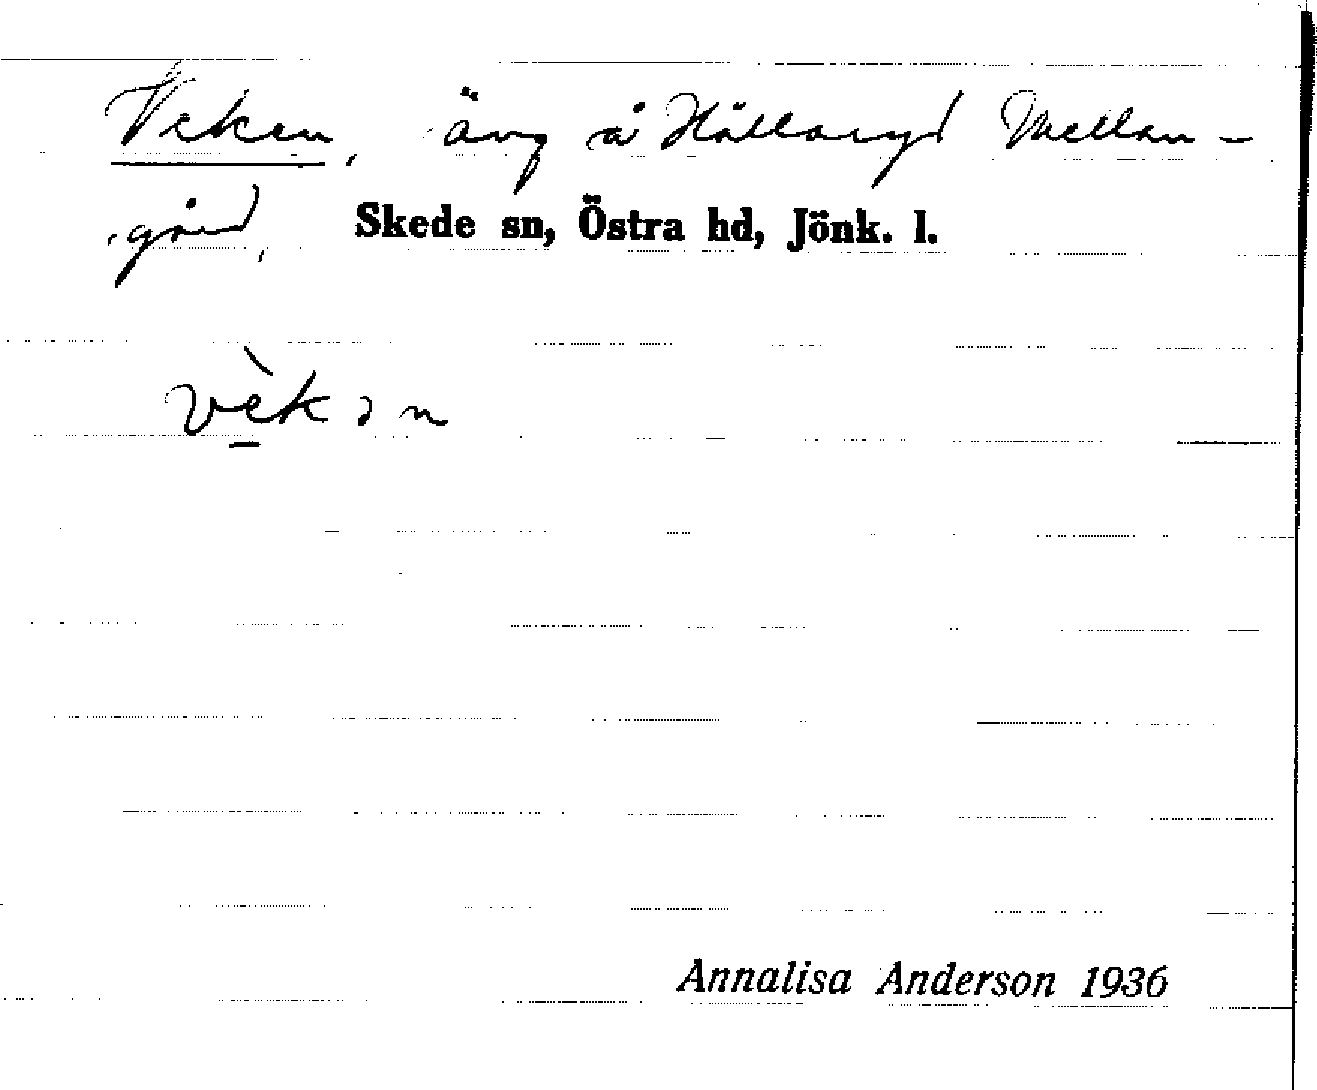 Veken, äng å Hållaryd Mellan-
gård, Skede sn, Östra hd, Jönk. l.
vèkən
Annalisa Anderson 1936